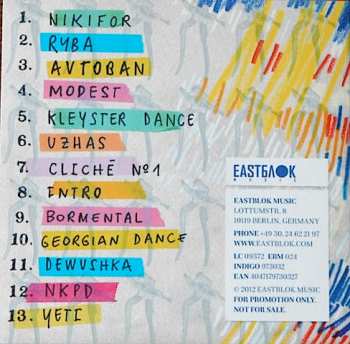 1. NIKIFOR
2. RYBA
3. AVTOBAN
4. MODEST
5. KLEYSTER DANCE
6. UZHAS
7. CLICHÉ Nº1
8. INTRO
9. BORMENTAL
10. GEORGIAN DANCE
11. DEWUSHKA
12. NKPD
13. YETI
EASTБЛOK
MUSIC
EASTBLOK MUSIC
LOTTUMSTR. 8
10119 BERLIN, GERMANY
PHONE +49 30. 24 62 21 97
WWW.EASTBLOK.COM
LC 09372 EBM 024
INDIGO 973032
EAN 4047179730327
© 2012 EASTBLOK MUSIC
FOR PROMOTION ONLY.
NOT FOR SALE.